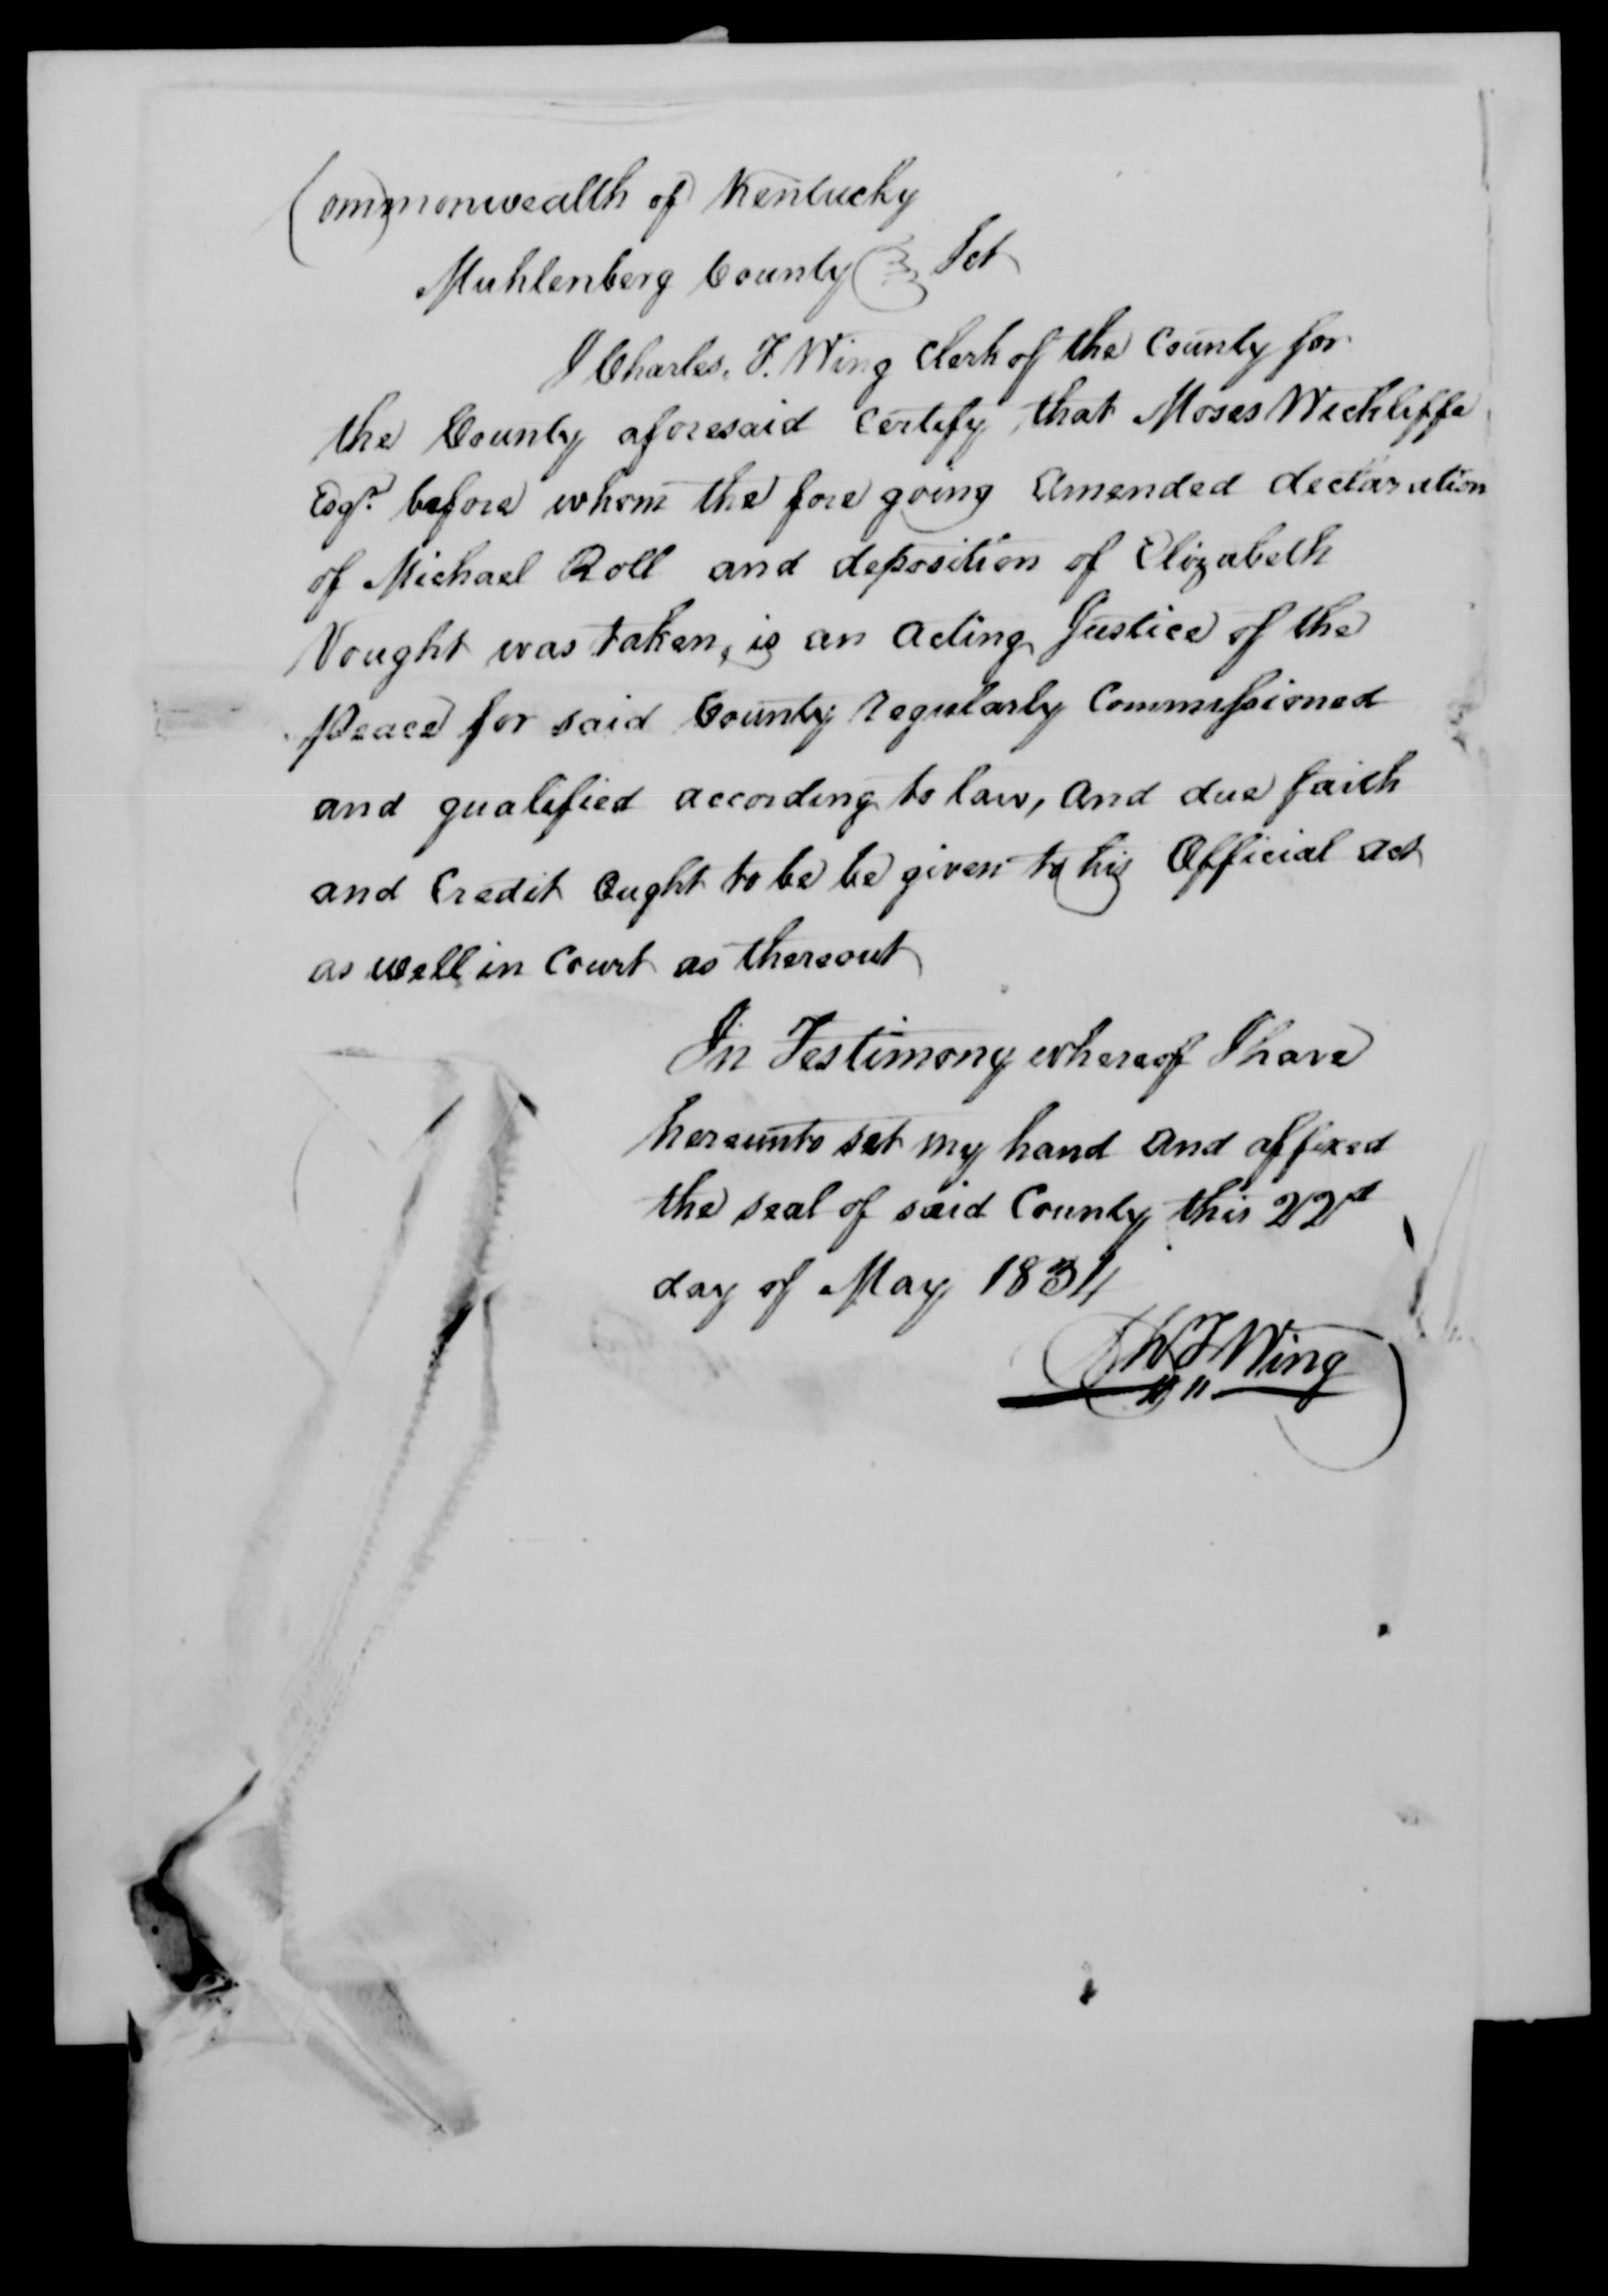 Commonwealth of Kentucky
Muhlenberg County Sct
I Charles. F. Wing Clerk of the County for
the County aforesaid Certify that Moses Wickliffe
Esqr. before whom the fore going Amended declaration
of Michael Roll and deposition of Elizabeth
Vought was taken, is an acting Justice of the
Peace for said County regularly Commissioned
and qualified according to law, and due faith
and Credit Ought to be be given to his Official act
as well in Court as thereout
In Testimony whereof I have
hereunto set my hand and affixed
the seal of said County this 22d
day of May 1834
Ch F Wing